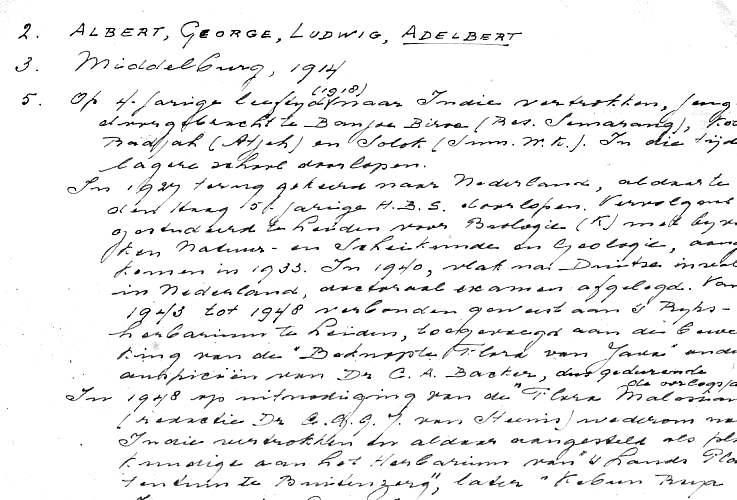 2. ALBERT, GEORGE, LUDWIG, ADELBERT
3. Middelburg, 1914
5. Op 4-jarige leeftijd (1918) naar Indie vertrokken, jeug
doorgebracht te Banjoe Biroe (Res. Semarang), Koe
Radjah (Atjeh) en Solok (Sum. W.K.). In die tijd
lagere school doorlopen.
In 1927 terug gekeerd naar Nederland, aldaar te
den Haag 5-jarige H.B.S. doorlopen. Vervolgens
gestudeerd te Leiden voor Biologie (K) met byva
ken Natuur- en Scheikunde en Geologie, aange
komen in 1933. In 1940, vlak na Duitse inval
in Nederland, doctoraal examen afgelegd. Van
1943 tot 1948 verbonden geweest aan 's Ryks-
herbarium te Leiden, toegevoegd aan de bewer
king van de "Beknopte Flora van Java" onder
auspiciën van Dr C. A. Backer, dus gedurende
de oorlogsja
In 1948 op uitnodiging van de "Flora Malesiana
(redactie Dr C.G.G.J. van Steenis) wederom na
Indie vertrokken en aldaar aangesteld als pla
kundige aan het Herbarium van "'s Lands Pla
tentuin te Buitenzorg", later "Kebun Raya